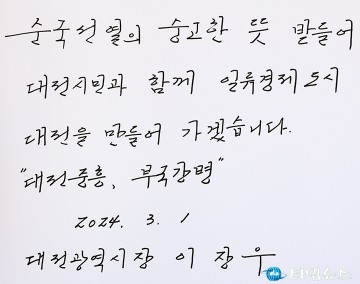 순국선열의 숭고한 뜻 받들어
대전시민과 함께 일류경제도시
대전을 만들어 가겠습니다.
"대전중흥, 부국강병"
2024. 3. 1
대전광역시장 이 장 우